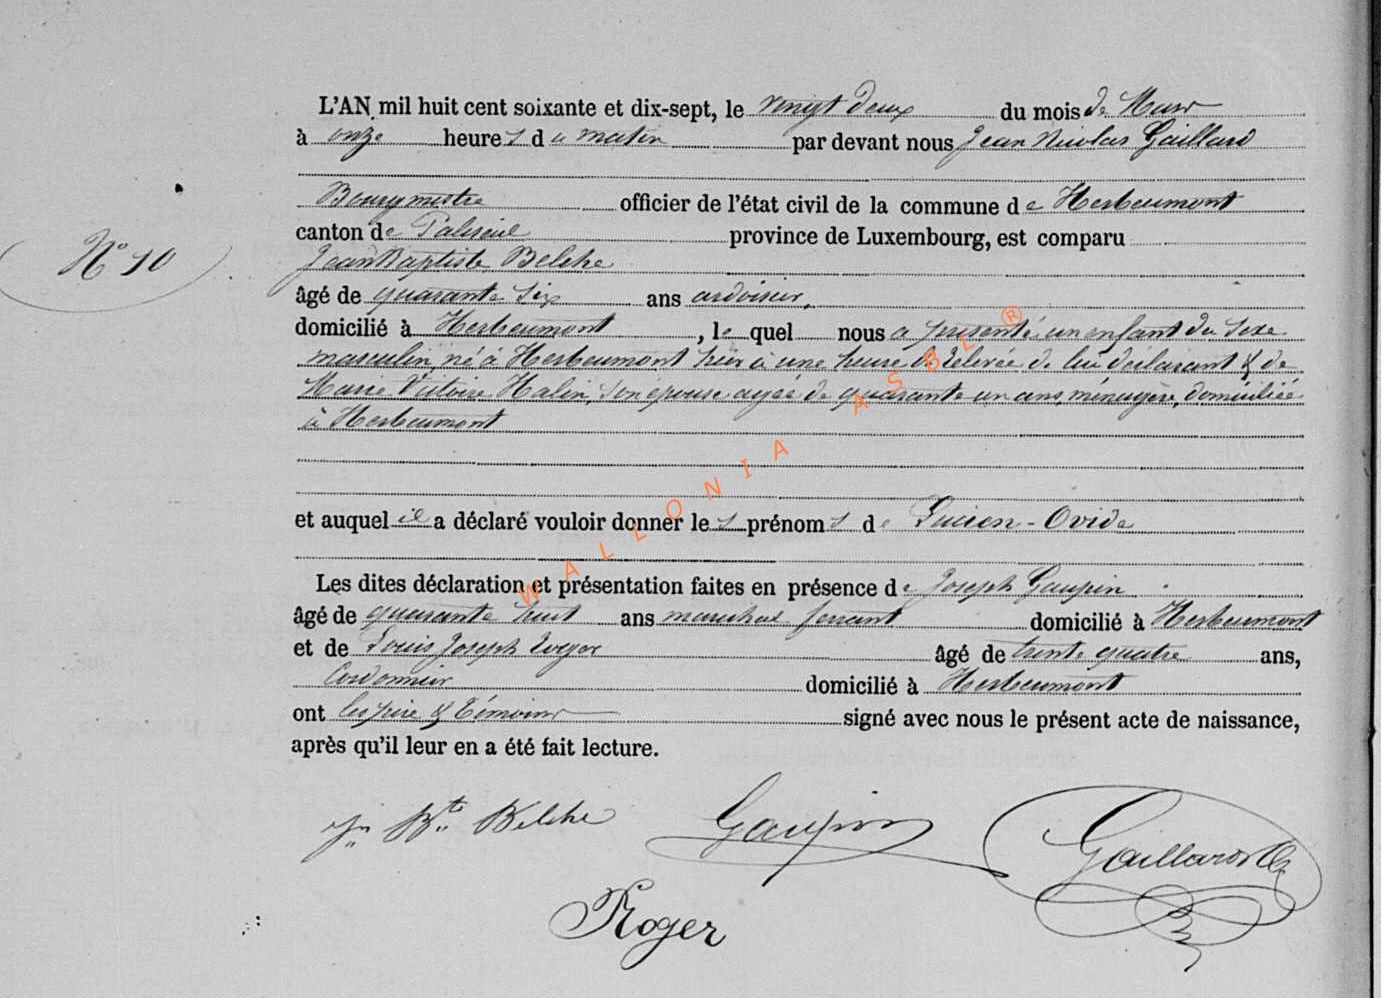 L'AN mil huit cent soixante et dix-sept, le vingt deux du mois de Mars
à onze heures du matin par devant nous Jean Nicolas Gaillard
Bourgmestre officier de l'état civil de la commune de Herbeumont
canton de Paliseul province de Luxembourg, est comparu
N° 10
Jean Baptiste Belche
âgé de quarante six ans ardoisier,
domicilié à Herbeumont, lequel nous a présenté un enfant du sexe
masculin, né à Herbeumont hier à une heure de relevée de lui déclarant & de
Marie Victoire Halin, son épouse agée de quarante un ans, ménagère, domiciliée
à Herbeumont
et auquel il a déclaré vouloir donner les prénoms de Lucien-Ovide
Les dites déclaration et présentation faites en présence de Joseph Gaupin
âgé de quarante huit ans maréchal ferrant domicilié à Herbeumont
et de Louis Joseph Roger âgé de trente quatre ans,
Cordonnier domicilié à Herbeumont
ont les père & témoins signé avec nous le présent acte de naissance,
après qu'il leur en a été fait lecture.
Jn Bte Belche Gaupin Gaillard
Roger
WALLONIA ASBL ®